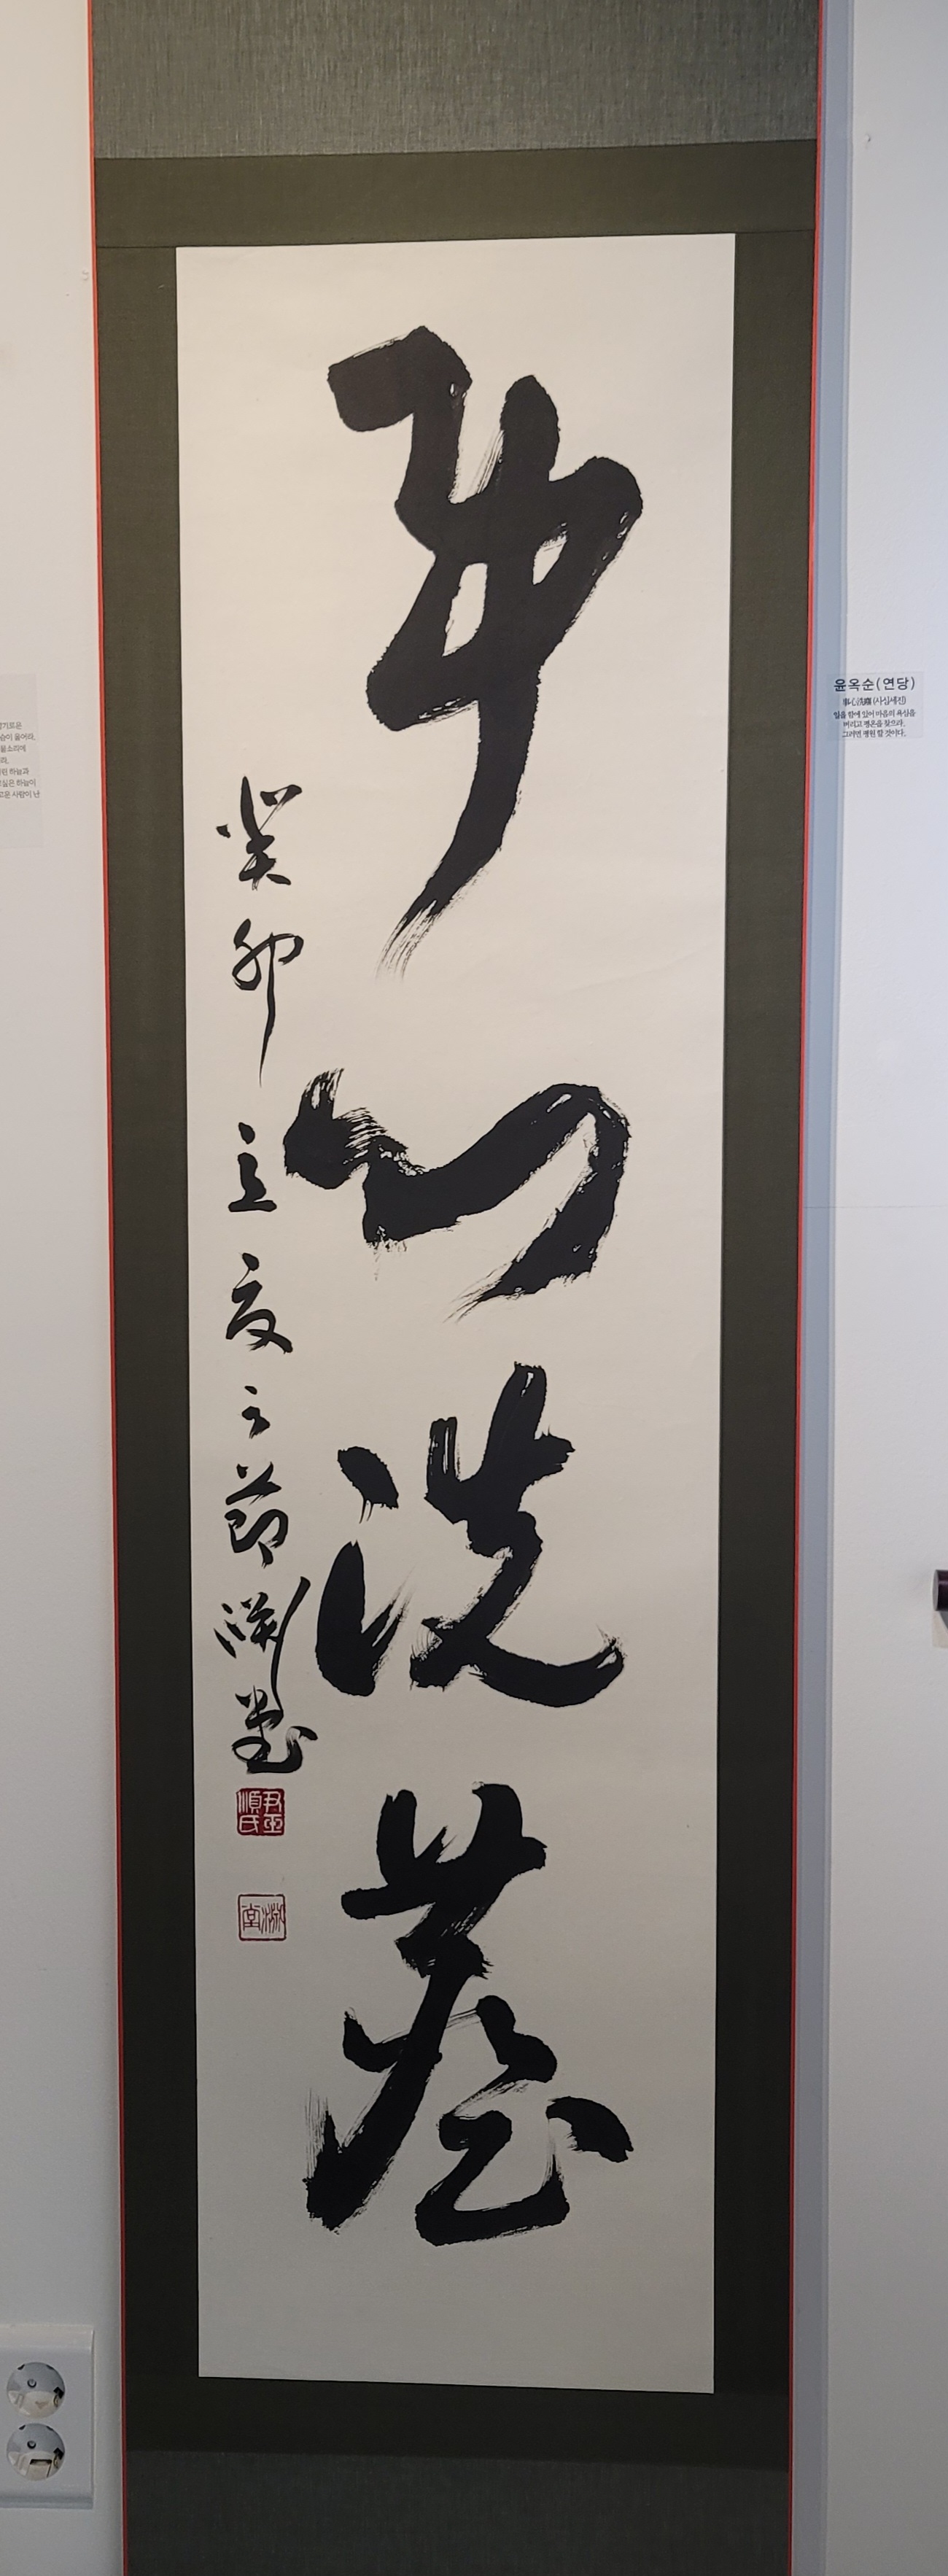 事心洗塵
癸卯立夏之節 淵堂
尹玉順氏
淵堂
윤옥순(연당)
事心洗塵(사심세진)
일을 함에 있어 마음의 욕심을
버리고 평온을 찾으라.
그러면 평원 할 것이다.
기로운
슴이 울어라.
물소리에
라.
린 하늘과
싶은 하늘이
로운 사람이 난